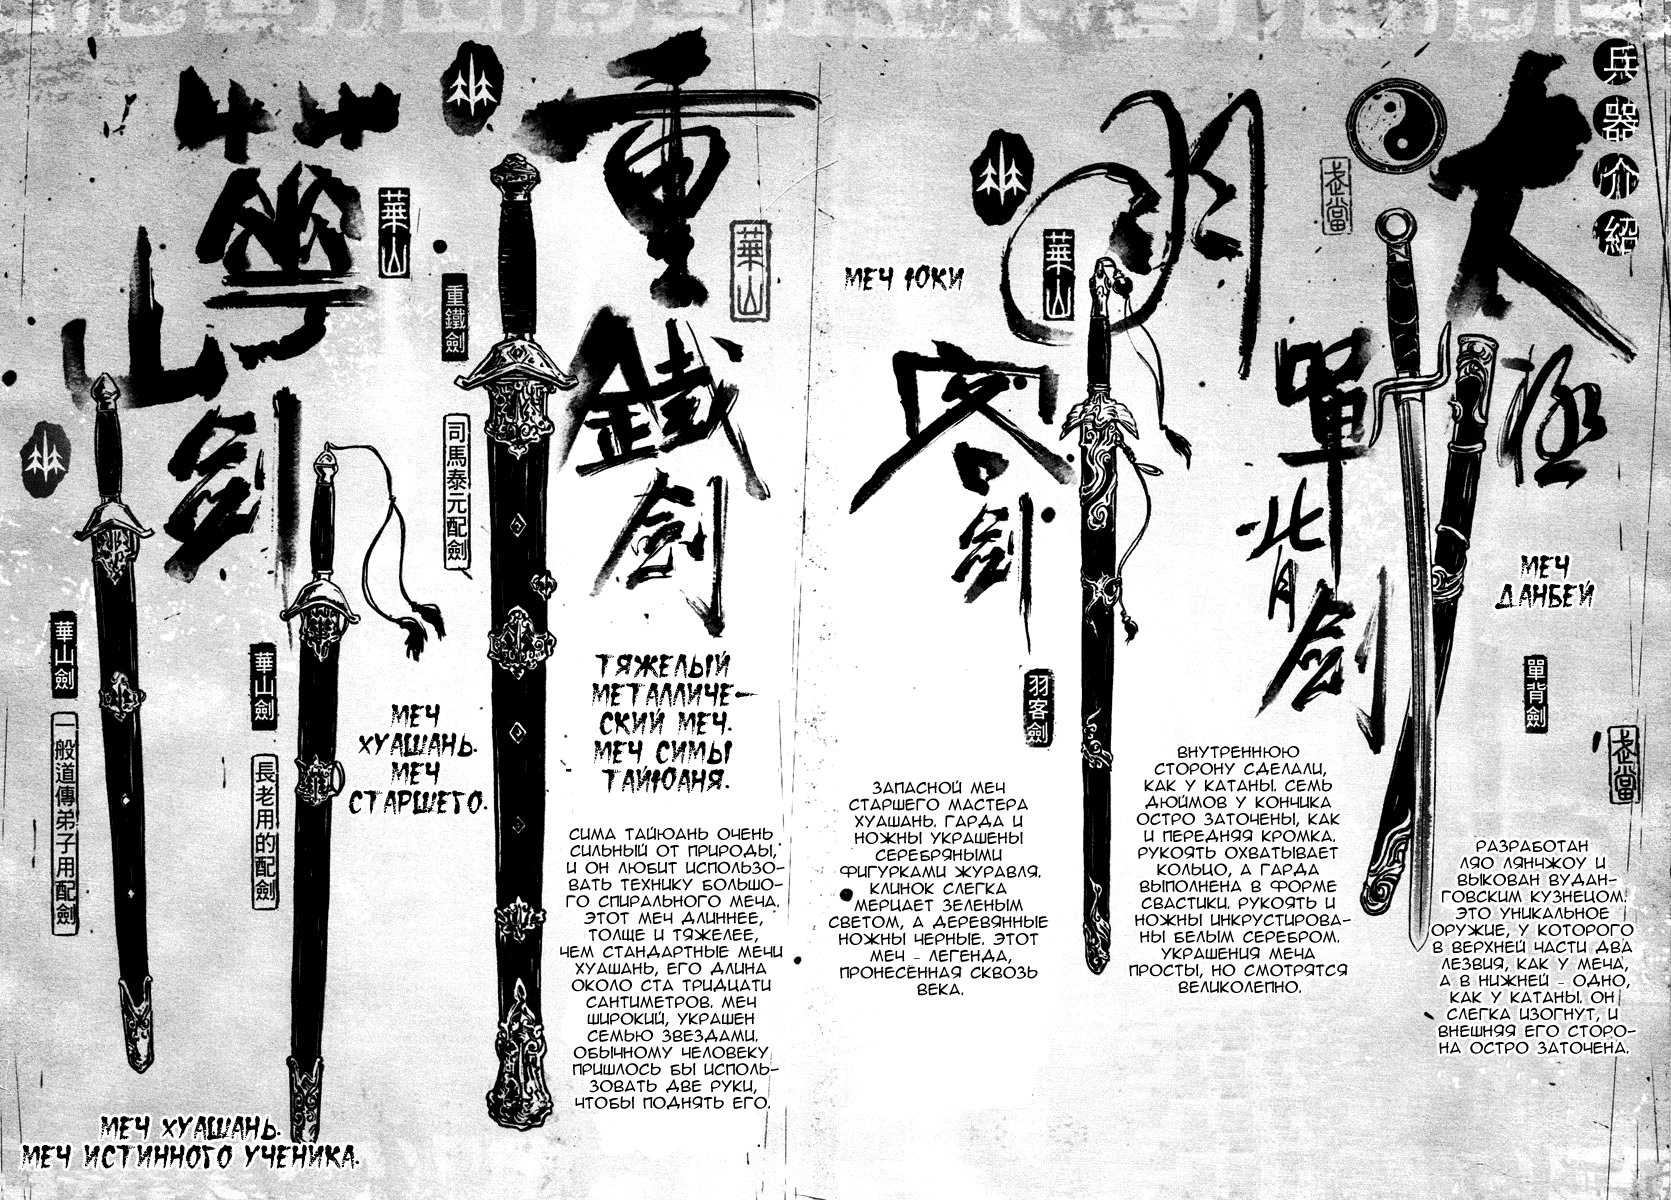 兵器介紹
太極
武當
單背劍
МЕЧ
ДАНБЕЙ
單背劍
武當
РАЗРАБОТАН
ЛЯО ЛЯНЧЖОУ И
ВЫКОВАН ВУДАН-
ГОВСКИМ КУЗНЕЦОМ.
ЭТО УНИКАЛЬНОЕ
ОРУЖИЕ, У КОТОРОГО
В ВЕРХНЕЙ ЧАСТИ ДВА
ЛЕЗВИЯ, КАК У МЕЧА,
А В НИЖНЕЙ - ОДНО,
КАК У КАТАНЫ. ОН
СЛЕГКА ИЗОГНУТ, И
ВНЕШНЯЯ ЕГО СТОРО-
НА ОСТРО ЗАТОЧЕНА.
ВНУТРЕННЮЮ
СТОРОНУ СДЕЛАЛИ,
КАК У КАТАНЫ. СЕМЬ
ДЮЙМОВ У КОНЧИКА
ОСТРО ЗАТОЧЕНЫ, КАК
И ПЕРЕДНЯЯ КРОМКА.
РУКОЯТЬ ОХВАТЫВАЕТ
КОЛЬЦО, А ГАРДА
ВЫПОЛНЕНА В ФОРМЕ
СВАСТИКИ. РУКОЯТЬ И
НОЖНЫ ИНКРУСТИРОВА-
НЫ БЕЛЫМ СЕРЕБРОМ.
УКРАШЕНИЯ МЕЧА
ПРОСТЫ, НО СМОТРЯТСЯ
ВЕЛИКОЛЕПНО.
羽客劍
華山
МЕЧ ЮКИ
羽客劍
ЗАПАСНОЙ МЕЧ
СТАРШЕГО МАСТЕРА
ХУАШАНЬ. ГАРДА И
НОЖНЫ УКРАШЕНЫ
СЕРЕБРЯНЫМИ
ФИГУРКАМИ ЖУРАВЛЯ.
КЛИНОК СЛЕГКА
МЕРЦАЕТ ЗЕЛЕНЫМ
СВЕТОМ, А ДЕРЕВЯННЫЕ
НОЖНЫ ЧЕРНЫЕ. ЭТОТ
МЕЧ - ЛЕГЕНДА,
ПРОНЕСЁННАЯ СКВОЗЬ
ВЕКА.
重鐵劍
華山
重鐵劍
司馬泰元配劍
ТЯЖЕЛЫЙ
МЕТАЛЛИЧЕ-
СКИЙ МЕЧ.
МЕЧ СИМЫ
ТАЙЮАНЯ.
СИМА ТАЙЮАНЬ ОЧЕНЬ
СИЛЬНЫЙ ОТ ПРИРОДЫ,
И ОН ЛЮБИТ ИСПОЛЬЗО-
ВАТЬ ТЕХНИКУ БОЛЬШО-
ГО СПИРАЛЬНОГО МЕЧА.
ЭТОТ МЕЧ ДЛИННЕЕ,
ТОЛЩЕ И ТЯЖЕЛЕЕ,
ЧЕМ СТАНДАРТНЫЕ МЕЧИ
ХУАШАНЬ, ЕГО ДЛИНА
ОКОЛО СТА ТРИДЦАТИ
САНТИМЕТРОВ. МЕЧ
ШИРОКИЙ, УКРАШЕН
СЕМЬЮ ЗВЕЗДАМИ.
ОБЫЧНОМУ ЧЕЛОВЕКУ
ПРИШЛОСЬ БЫ ИСПОЛЬ-
ЗОВАТЬ ДВЕ РУКИ,
ЧТОБЫ ПОДНЯТЬ ЕГО.
華山劍
華山
華山劍
長老用的配劍
МЕЧ
ХУАШАНЬ.
МЕЧ
СТАРШЕГО.
華山劍
一般道傳弟子用配劍
МЕЧ ХУАШАНЬ.
МЕЧ ИСТИННОГО УЧЕНИКА.